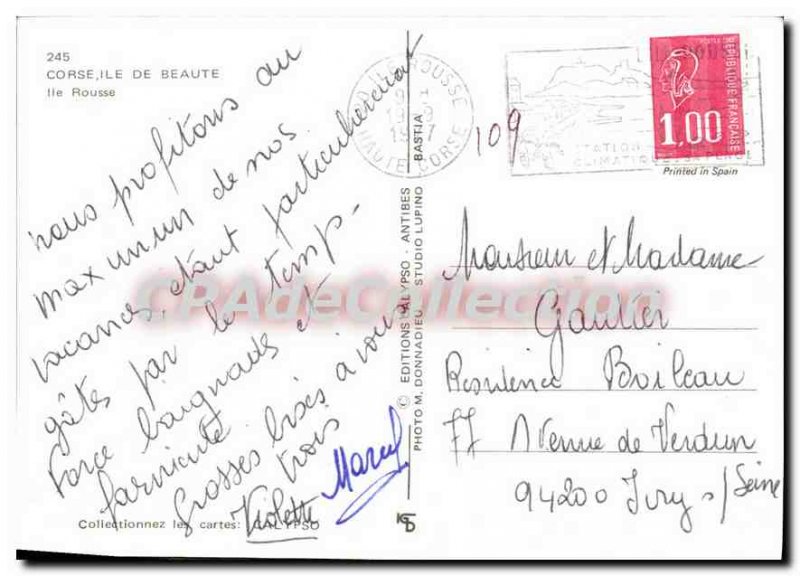 245
CORSE, ILE DE BEAUTE
Ile Rousse
nous profitons au
maximum de nos
vacances, étant particulièrement
gâtés par le temps.
Force baignades et
farniente.
Grosses bises à vous
trois
Violette Marcel
Collectionnez les cartes: CALYPSO
© EDITIONS CALYPSO. ANTIBES BASTIA
PHOTO M. DONNADIEU STUDIO LUPINO
ILE ROUSSE
HAUTE CORSE
109
STATION
CLIMATIQUE
REPUBLIQUE FRANÇAISE
1,00
Printed in Spain
Monsieur et Madame
Gautier
Résidence Boileau
77 Avenue de Verdun
94200 Ivry s/Seine
CPAdeCollection